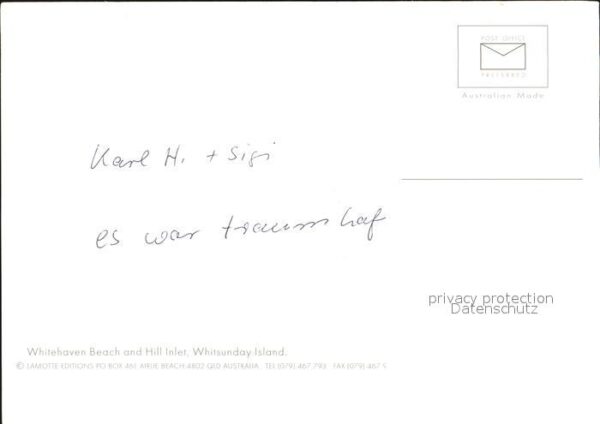 POST OFFICE
PREFERRED
Australian Made
Karl H. + Sigi
es war traumhaf
privacy protection
Datenschutz
Whitehaven Beach and Hill Inlet, Whitsunday Island.
© LAMOTTE EDITIONS PO BOX 461 AIRLIE BEACH 4802 QLD AUSTRALIA. TEL (079) 467 793 FAX (079) 467 5